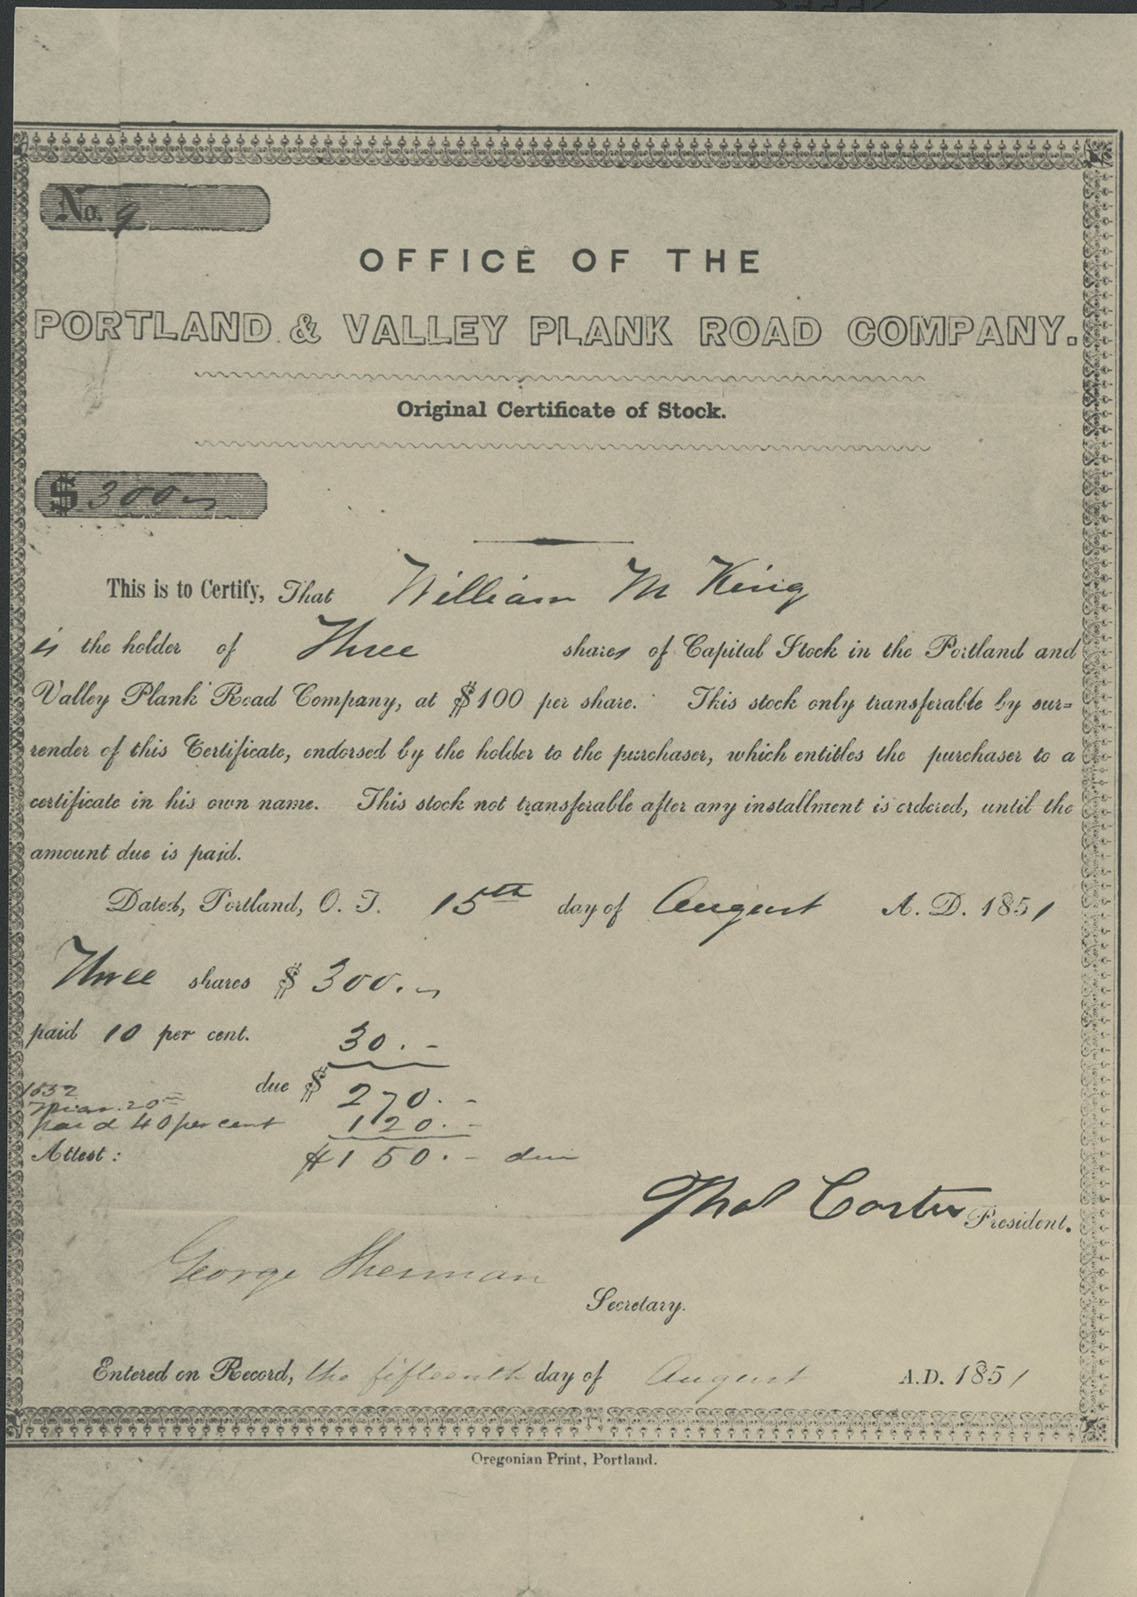 No. 9
OFFICE OF THE
PORTLAND & VALLEY PLANK ROAD COMPANY.
Original Certificate of Stock.
$ 300
This is to Certify, That William M King
is the holder of Three shares of Capital Stock in the Portland and
Valley Plank Road Company, at $100 per share. This stock only transferable by sur-
render of this Certificate, endorsed by the holder to the purchaser, which entitles the purchaser to a
certificate in his own name. This stock not transferable after any installment is ordered, until the
amount due is paid.
Dated, Portland, O. T. 15th day of August A. D. 1851
Three shares $ 300.-
paid 10 per cent. 30.-
due $ 270.-
1852
Mar. 20th
paid 40 per cent 120.-
Attest: $150.- due
Thos Carter President.
George Sherman
Secretary.
Entered on Record, the fifteenth day of August A.D. 1851
Oregonian Print, Portland.